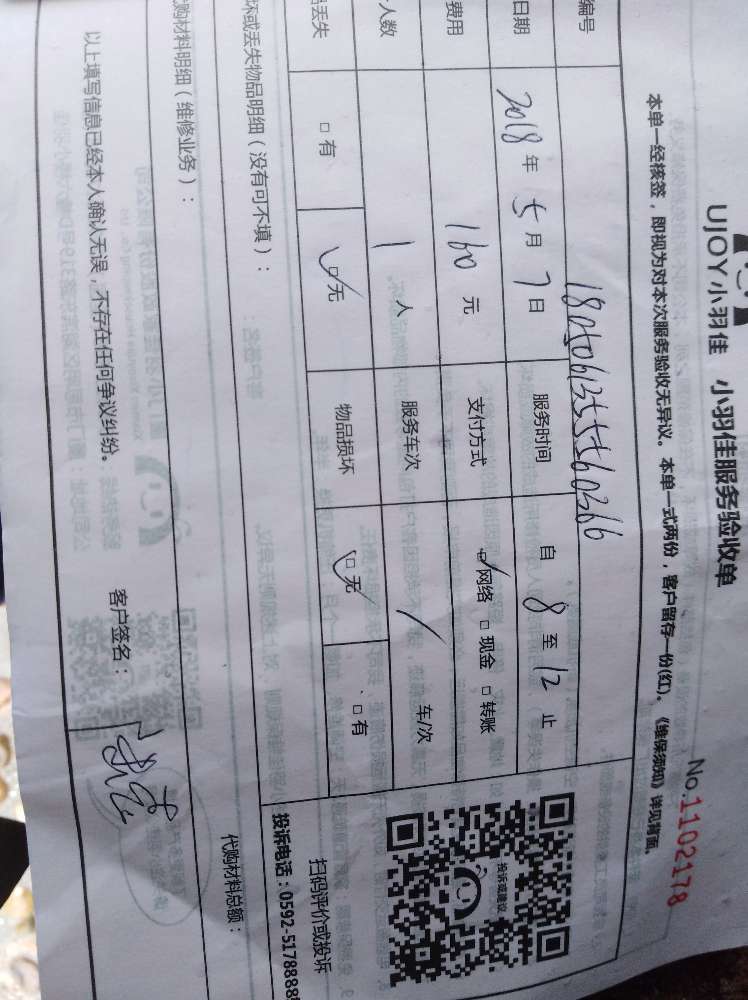 UJOY小羽佳 小羽佳服务验收单
No.1102178
本单一经核签，即视为对本次服务验收无异议。本单一式两份，客户留存一份(红)。《维保须知》详见背面。
编号
日期 2018年5月7日 服务时间 自8至12止
费用 160元 支付方式 网络 □现金 □转账
人数 1人 服务车次 / 车/次
丢失 □有 □无 物品损坏 □无 □有
坏或丢失物品明细（没有可不填）：
购材料明细（维修业务）：
代购材料总额：
以上填写信息已经本人确认无误，不存在任何争议纠纷。
客户签名：
投诉或建议
扫码评价或投诉
投诉电话：0592-5178888